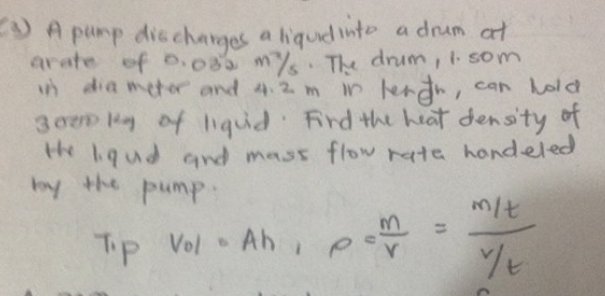 (3) A pump discharges a liquid into a drum at
a rate of 0.032 m³/s. The drum, 1.50m
in diameter and 4.2 m in length, can hold
3000 kg of liquid. Find the heat density of
the liqud and mass flow rate handeled
by the pump.
Tip Vol = Ah, ρ = m/v = (m/t)/(v/t)